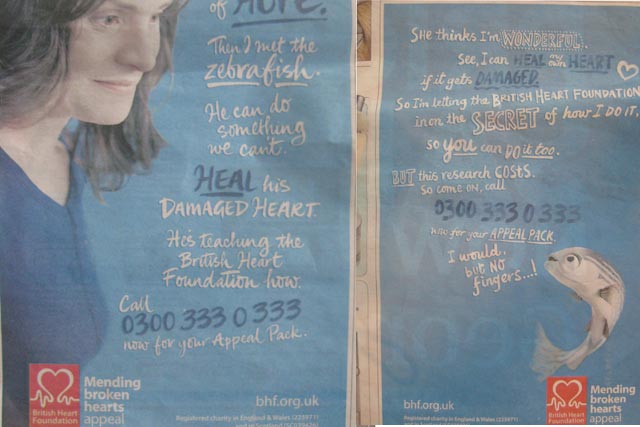 of HOPE.
Then I met the
zebrafish.
He can do
something
we can't.
HEAL his
DAMAGED HEART.
He's teaching the
British Heart
Foundation how.
Call
0300 333 0 333
now for your Appeal Pack.
British Heart
Foundation
Mending
broken
hearts
appeal
bhf.org.uk
Registered charity in England & Wales (225971)
SHe thinks I'm WONDERFUL.
See, I can HEAL my own HEART
if it gets DAMAGED.
So I'm letting the BRITISH HEART FOUNDATION
in on the SECRET of how I DO IT,
so you can DO it too.
BUT this research COSTS.
so come on, call
0300 333 0 333
now for your APPEAL PACK.
I would,
but NO
fingers...!
bhf.org.uk
Registered charity in England & Wales (225971)
British Heart
Foundation
Mending
broken
hearts
appeal